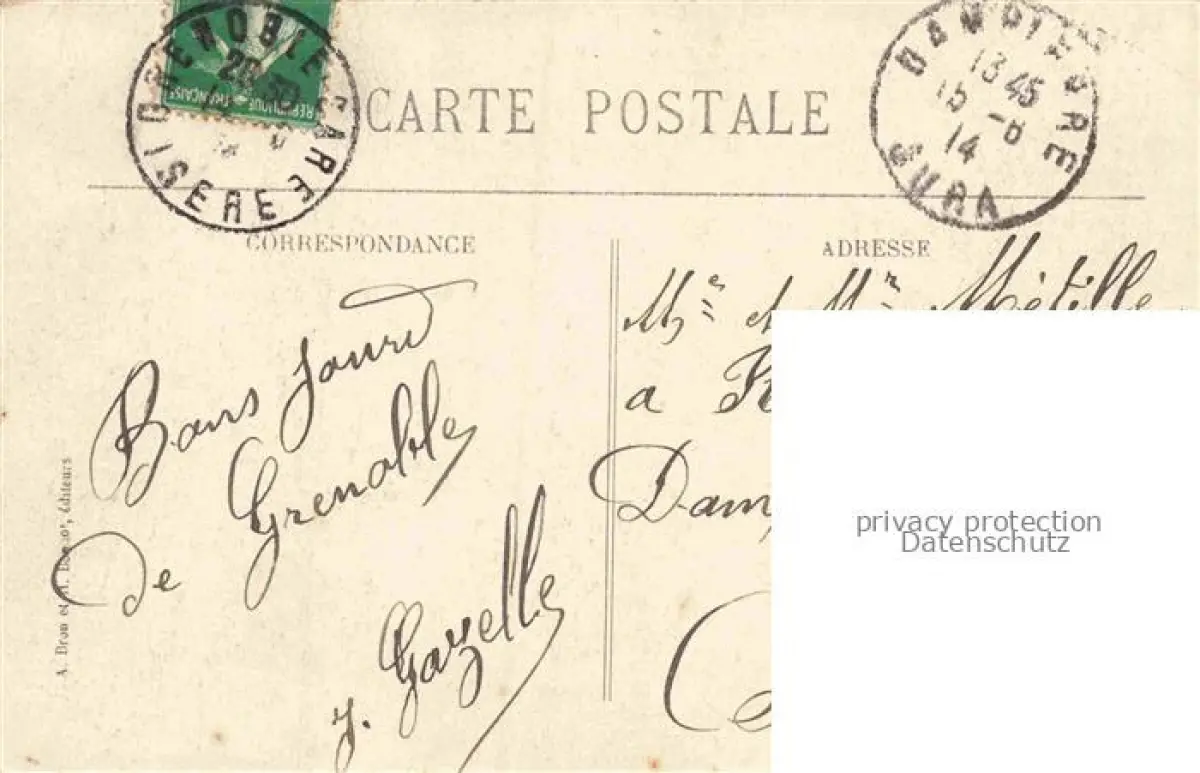 GRENOBLE GARE
20 30
ISERE
REPUBLIQUE FRANÇAISE
CARTE POSTALE
DAMPIERRE
13 45
15 -6
14
JURA
CORRESPONDANCE
ADRESSE
Bons jours
de Grenoble
J. Gazelle
Me et Mr Métille
a
Dam
privacy protection
Datenschutz
A. Bron et éditeurs